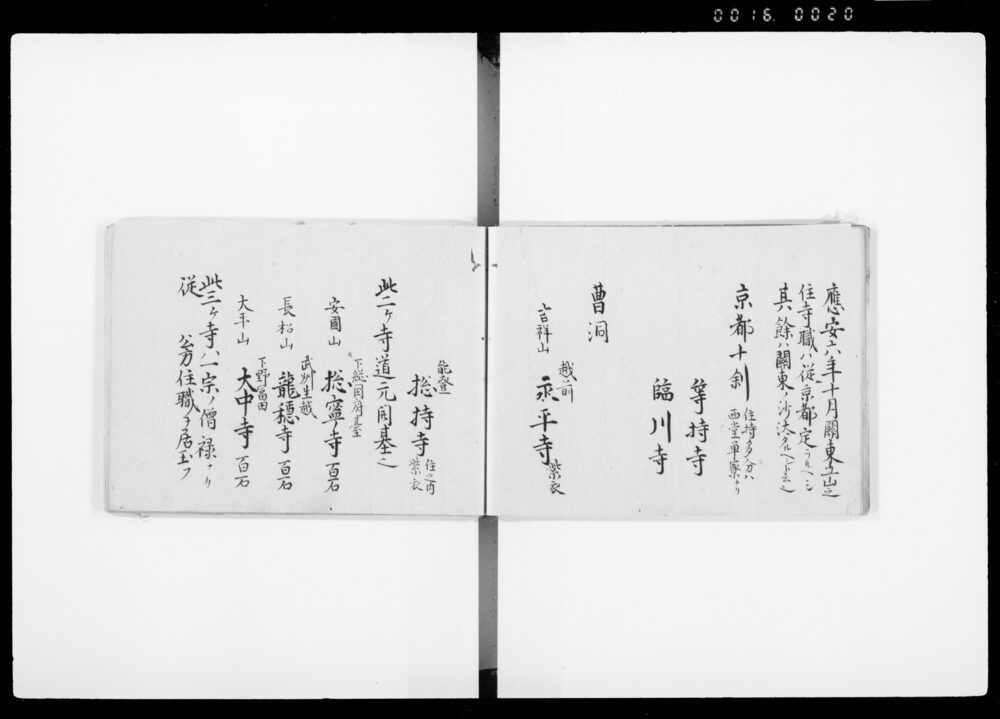 0016. 0020
應安六年十月關東五山之
住寺職ハ従京都定ラルヘシ
其餘ハ關東ノ沙汰タルヘシト云々
京都十刹 住持多分ハ
西堂單寮ナリ
等持寺
臨川寺
曹洞
吉祥山 越前 永平寺 紫衣
能登 総持寺 住山内
紫衣
此二ケ寺道元開基也
安國山 下総国府臺 総寧寺 百石
長松山 武州生越 龍穏寺 百石
大平山 下野冨田 大中寺 百石
此三ケ寺ハ一宗ノ僧禄ナリ
従 公方住職ヲ居玉フ